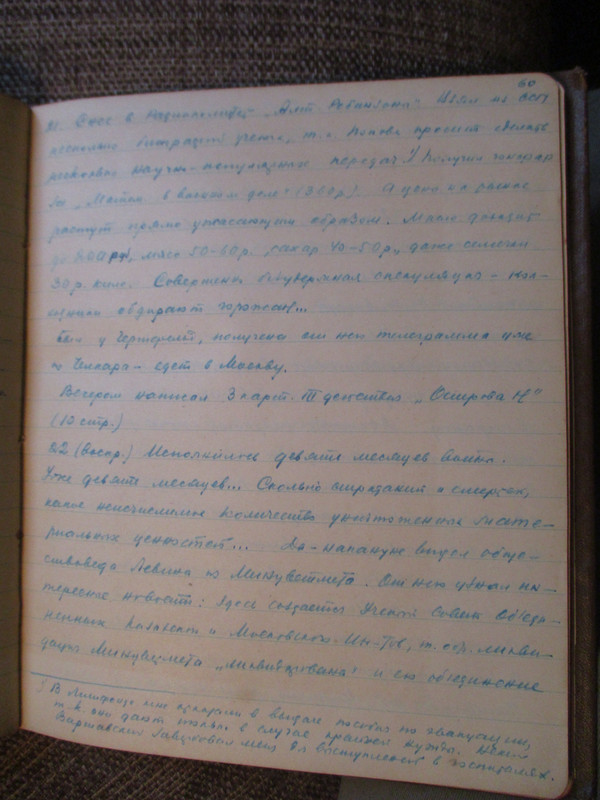 60
21. Снес в Радиокомитет „Алт. Робинзоны". Взял из ССП
несколько биографий ученых, т.к. Попова просит сделать
несколько научно-популярных передач. Получил гонорар
за „Метан в военном деле" (300 р.). А цены на рынке
растут прямо ужасающим образом. Масло доходит
до 200 руб, мясо 50-60 р., сахар 40-50 р., даже семечки
30 р. кило. Совершенно безудержная спекуляция -
обдирают горожан!...
Был у получена от нея телеграмма уже
из Челкара - едет в Москву.
Вечером написал 3 карт. III действия „Острова Н"
(10 стр.)
22 (воскр.) Исполнилось девять месяцев войны.
Уже девять месяцев... Сколько страданий и смертей,
какое неисчислимое количество уничтоженных мате-
риальных ценностей... На-кануне видел обще-
ствоведа Левина из Минцветмета. От него узнал ин-
тересные новости: Здесь создается Ученый Совет Объеди-
ненных Казахского и Московского Ин-тов, т. обр. ликви-
дация Минцветмета „ликвидирована" и его объединение
В Литфонде мне отказали в выдаче пособия по эвакуации,
т.к. они дают только в случае крайней нужды.
меня для выступлений в госпиталях.